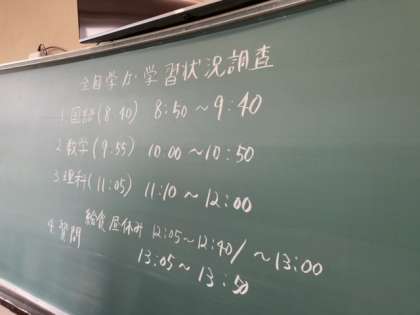 全国学力・学習状況調査
1.国語(8:40) 8:50～9:40
2.数学(9:55) 10:00～10:50
3.理科(11:05) 11:10～12:00
給食 昼休み 12:05～12:40/～13:00
4.質問 13:05～13:50